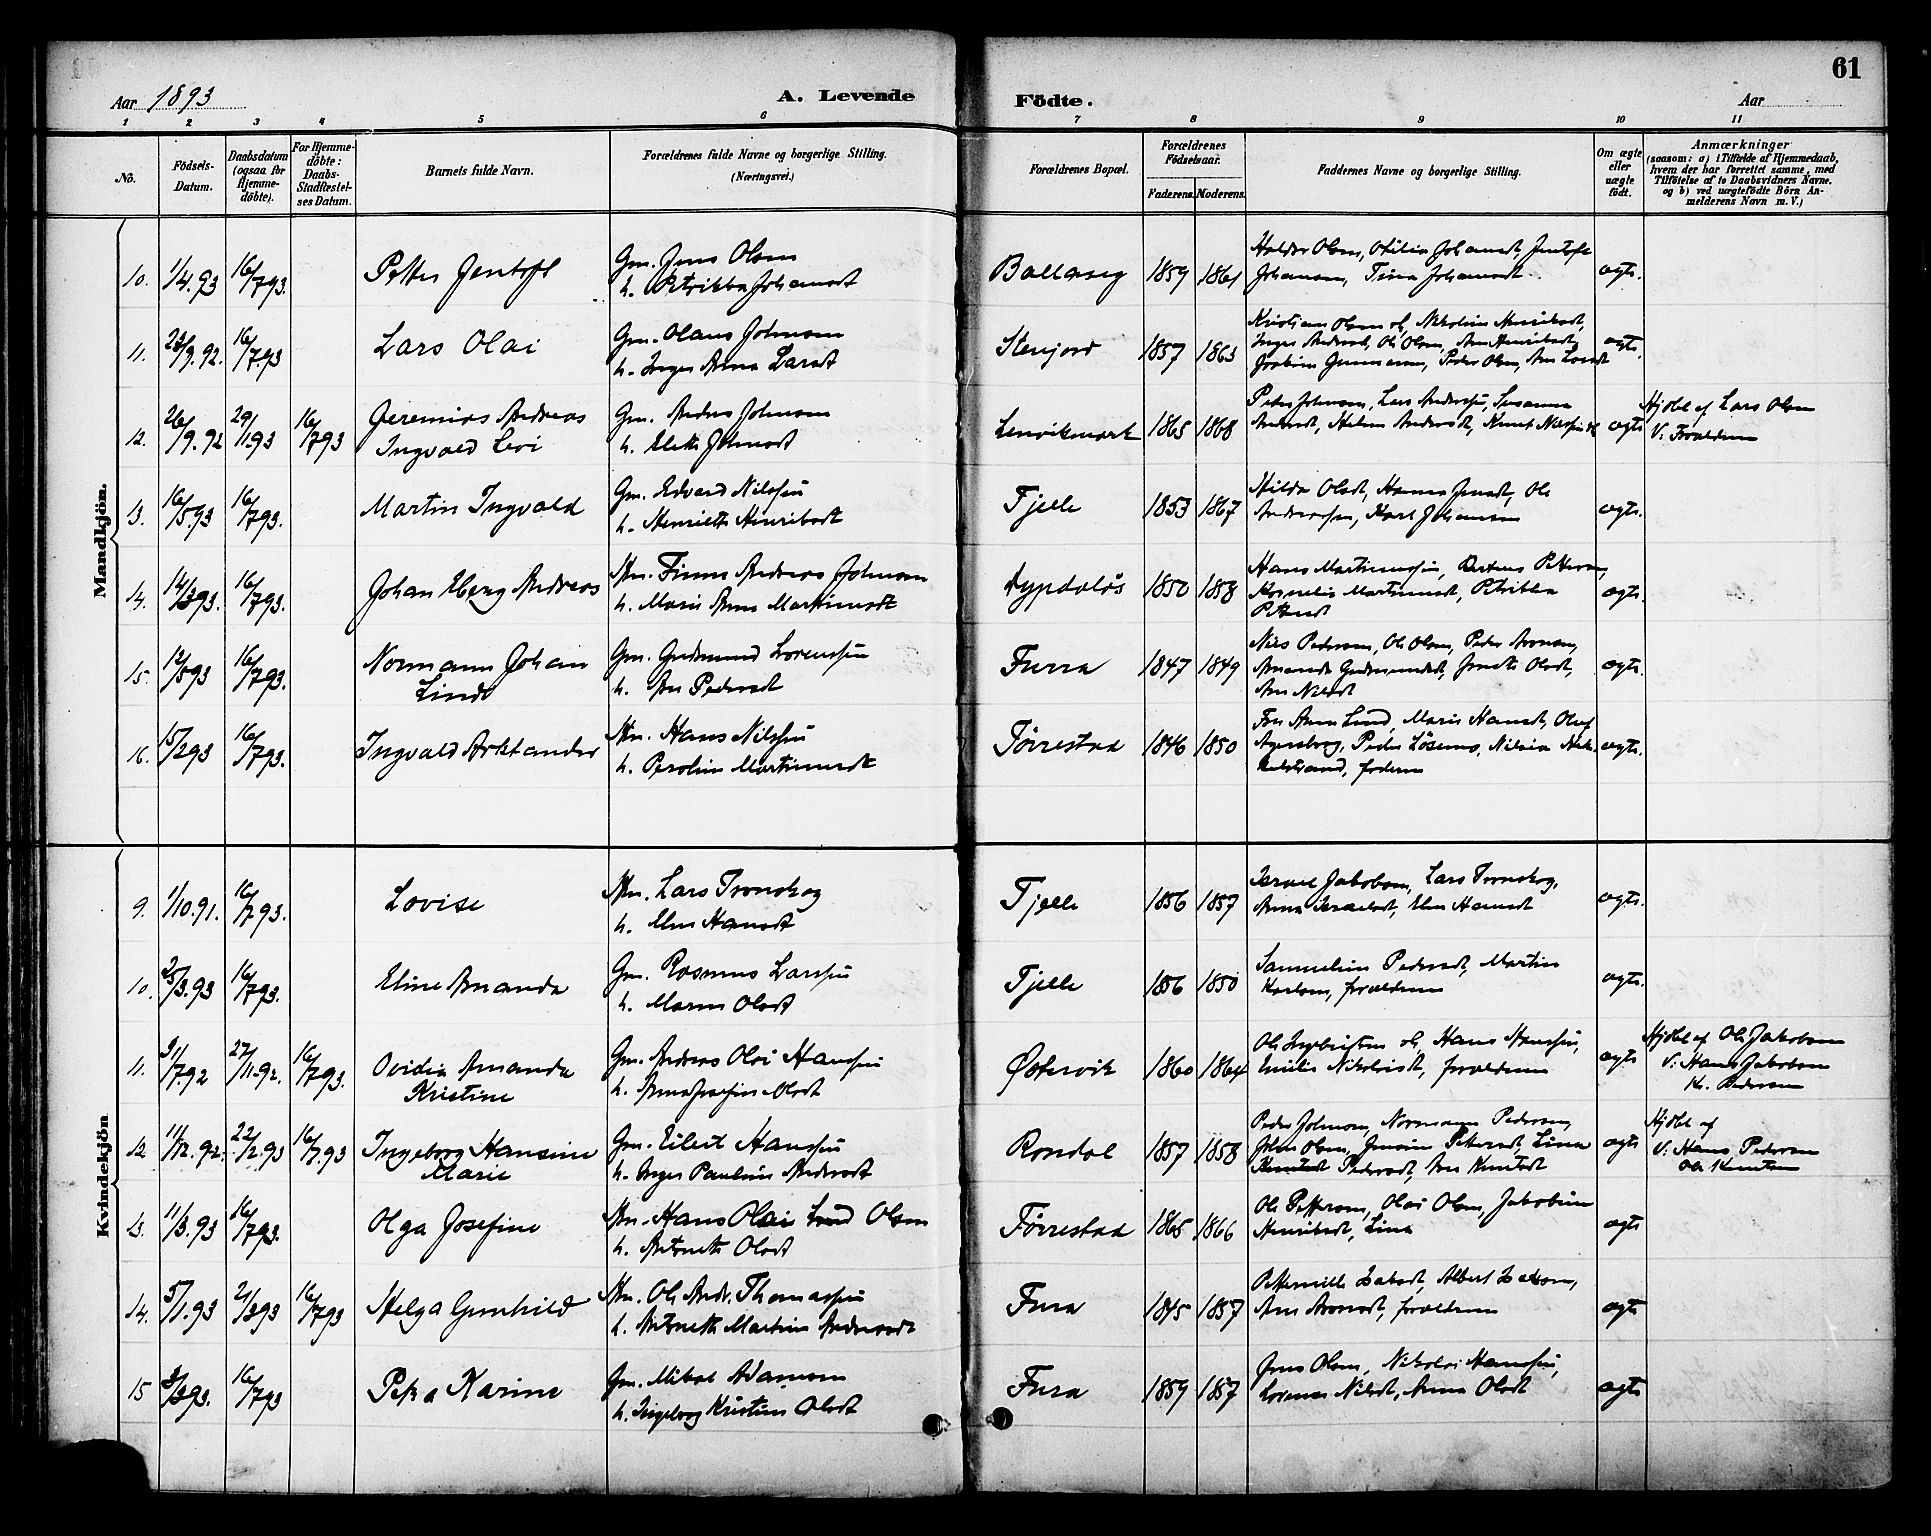 61
Aar 1893
A. Levende
Födte.
Aar
1 2 3 4 5 6 7 8 9 10 11
No.
Födsels-Datum.
Daabsdatum (ogsaa for Hjemme-döbte).
For Hjemme-döbte: Daabs-Stadfæstel-ses Datum.
Barnets fulde Navn.
Forældrenes fulde Navne og borgerlige Stilling. (Næringsvei.)
Forældrenes Bopæl.
Forældrenes Födselsaar.
Faderens. Moderens.
Faddernes Navne og borgerlige Stilling.
Om ægte eller uægte födt.
Anmærkninger
(saasom: a) i Tilfælde af Hjemmedaab, hvem der har forrettet samme, med Tilföielse af to Daabsvidners Navne, og b) ved uægtefödte Börn An-melderens Navn m. V.)
Mandkjön.
10. 1/4.93 16/793. Petter Jentoft Gm. Jens Olsen
h. Petrikka Johansdt Ballasvig 1859 1861 Haldor Olsen, Otilia Johansdt, Jentoft
Johansen, Tina Johansdt ægte.
11. 16/7.93 Lars Olai Gm. Olaus Johnsen
h. Inger Anna Larsdt Stenjord 1857 1863
Peder Olsen ægte.
12. 26/9.92 29/193 16/793 Jeremias Andreas
Ingvald Levi Gm. Anders Johnsen
h. Johnsdt Lenvikmark 1865 1868 Peder Johnsen, Lars Anderssen, Susanna
ægte Hjdbt af Lars Olsen
V: Forældrene
13. 16/5.93 16/793. Martin Ingvald Gm. Edvard Nilssen
h. Henriette Henriksdt Fjelle 1853 1867 Hilda Olsdt, Hanna Jensdt, Ole
Andreassen, Karl Johansen ægte.
14. 14/393. 16/793. Johan Andreas Stm. Finn Andreas Johnsen
h. Maria Anna Martinusdt 1850 1858 Hans Martinussen, Pettersen,
Kornelia Martinusdt, Petrikka
Pettersdt ægte.
15. 12/593 16/793. Normann Johan
Lind Gm. Gudmund Lorenssen
h. Ane Pedersdt Furra 1847 1849 Nils Pedersen, Ole Olsen, Peder Aronsen,
Amanda Gudmundsdt, Olsdt,
Ane Nilsdt ægte.
16. 15/293 16/793. Ingvald Arktander Stm. Hans Nilssen
h. Martinusdt Tørrestad 1846 1850 Fru Anna Lind, Maria Hansdt, Oluf
faderen ægte.
Kvindekjön
9. 1/10.91. 16/793. Lovise Stm. Lars Tronskog
h. Hansdt Fjelle 1856 1857 Israel Jakobsen, Lars Tronskog,
Anna Israelsdt, Hansdt ægte.
10. 25/3.93 16/793. Eline Amanda Gm. Rasmus Larssen
h. Maren Olsdt Fjelle 1856 1850 Samueline Pedersdt, Martin
Karlsen, forældrene ægte.
11. 31/7.92 27/11.92. 16/793. Ovidia Amanda
Kristine Gm. Andreas Olai Hanssen
h. Anna Josefine Olsdt Østervik 1860 1864 Hans Hanssen,
Emilie Nikolaisdt, forældrene ægte Hjdbt af Ole Jakobsen
V: Hans Jakobsen
Kr. Pedersen
12. 11/12.92. 22/2.93 16/7.93 Ingeborg Hansine
Marie Gm. Eilert Hanssen
h. Inger Pauline Andersdt Rondal 1857 1858 Peder Johnsen, Normann Pedersen,
Johan Olsen, Jensine Petersdt, Lina
Pedersdt, Ane Knutsdt ægte Hjdbt af
V: Hans Pedersen
Ole Knutsen
13. 11/3.93 16/793. Olga Josefine Stm. Hans Olai Olsen
h. Antonette Olsdt Tørrestad 1865 1866 Ole Pettersen, Olai Olsen, Jakobine
Henriksdt, Lina ægte
14. 5/1.93 2/293 16/793 Helga Gunhild Stm. Ole Andr. Thomassen
h. Antonette Martine Andreasdt Fura 1845 1857 Petternille Isaksdt, Albert Isaksen,
Ane Aronsdt, forældrene ægte
15 16/793 Petra Karine Gm. Mikal Adamsen
h. Ingeborg Kristine Olsdt Fura 1859 1857 Jens Olsen, Nikolai Hanssen,
Lorense Nilsdt, Anna Olsdt ægte